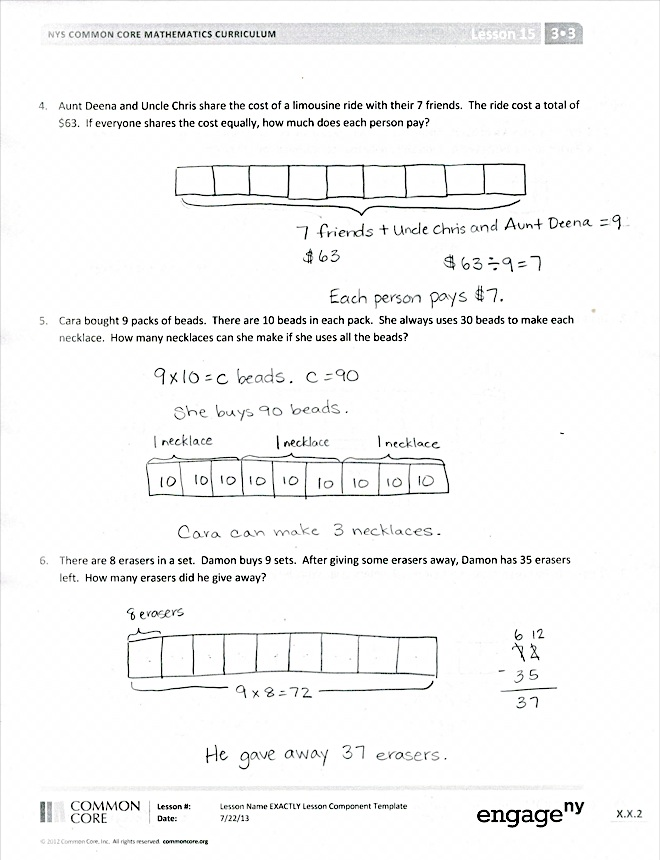 NYS COMMON CORE MATHEMATICS CURRICULUM Lesson 15 3•3
4. Aunt Deena and Uncle Chris share the cost of a limousine ride with their 7 friends. The ride cost a total of
$63. If everyone shares the cost equally, how much does each person pay?
7 friends + Uncle Chris and Aunt Deena = 9
$63 $63 ÷ 9 = 7
Each person pays $7.
5. Cara bought 9 packs of beads. There are 10 beads in each pack. She always uses 30 beads to make each
necklace. How many necklaces can she make if she uses all the beads?
9 x 10 = c beads. c = 90
She buys 90 beads.
1 necklace 1 necklace 1 necklace
10 10 10 10 10 10 10 10 10
Cara can make 3 necklaces.
6. There are 8 erasers in a set. Damon buys 9 sets. After giving some erasers away, Damon has 35 erasers
left. How many erasers did he give away?
8 erasers
6 12
72
- 35
37
9 x 8 = 72
He gave away 37 erasers.
COMMON CORE
Lesson #: Lesson Name EXACTLY Lesson Component Template
Date: 7/22/13
engage ny
X.X.2
© 2012 Common Core, Inc. All rights reserved. commoncore.org